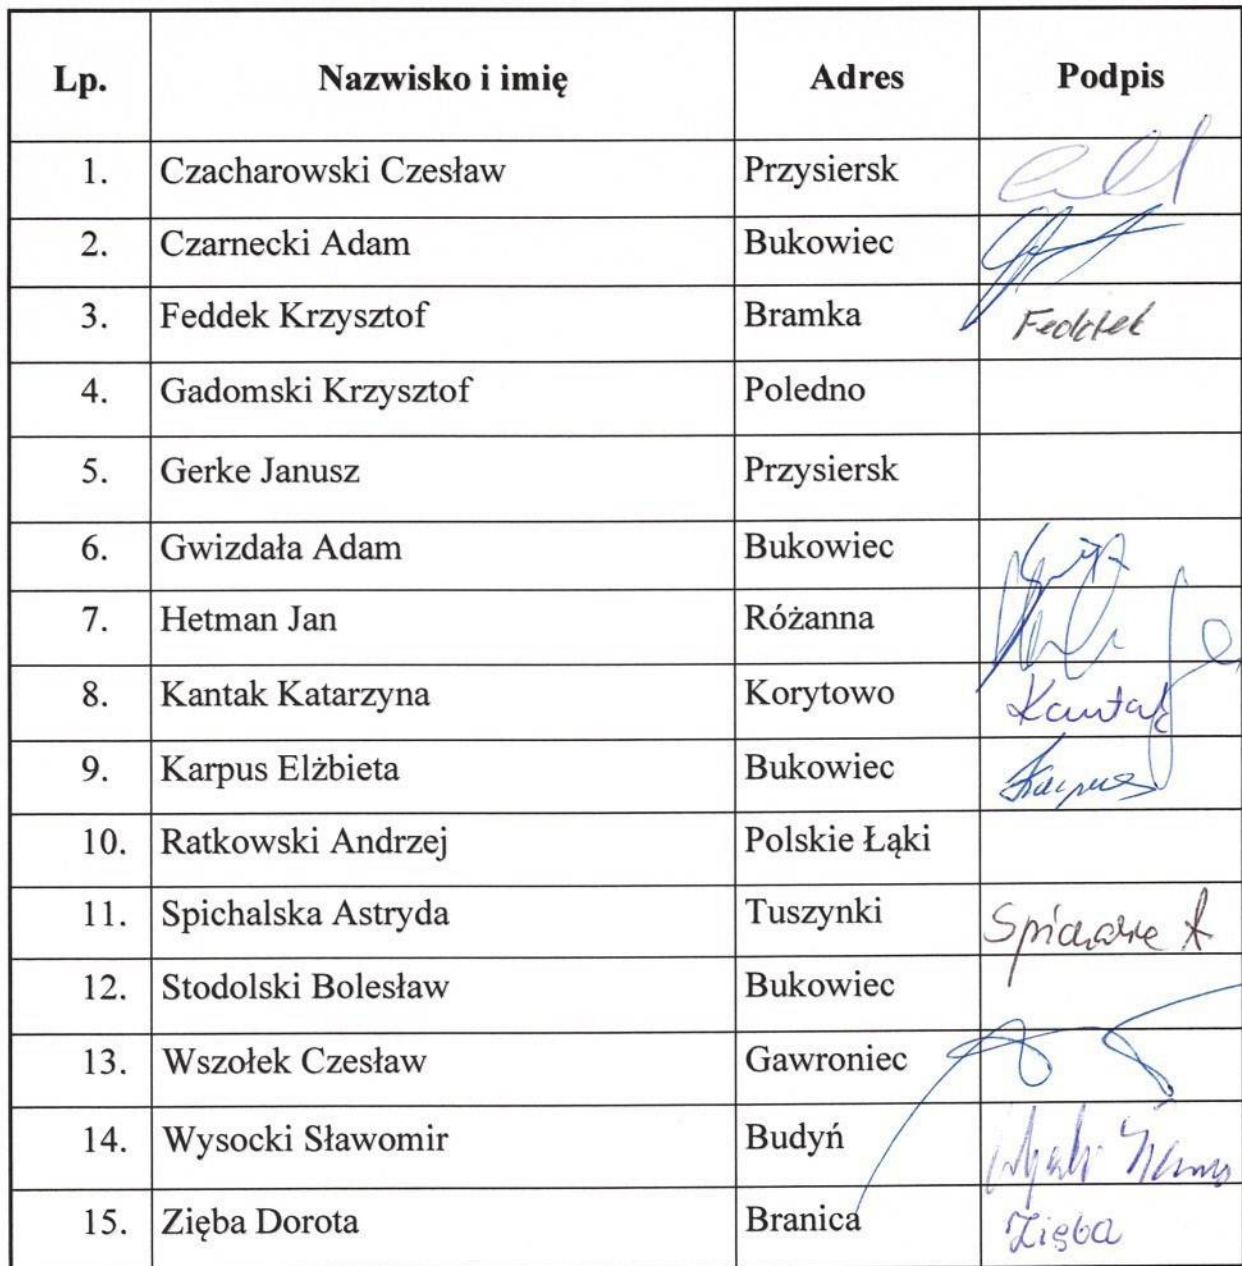 Lp. Nazwisko i imię Adres Podpis
1. Czacharowski Czesław Przysiersk
2. Czarnecki Adam Bukowiec
3. Feddek Krzysztof Bramka Feddek
4. Gadomski Krzysztof Poledno
5. Gerke Janusz Przysiersk
6. Gwizdała Adam Bukowiec
7. Hetman Jan Różanna
8. Kantak Katarzyna Korytowo Kantak
9. Karpus Elżbieta Bukowiec Karpus
10. Ratkowski Andrzej Polskie Łąki
11. Spichalska Astryda Tuszynki
12. Stodolski Bolesław Bukowiec
13. Wszołek Czesław Gawroniec
14. Wysocki Sławomir Budyń
15. Zięba Dorota Branica Zięba